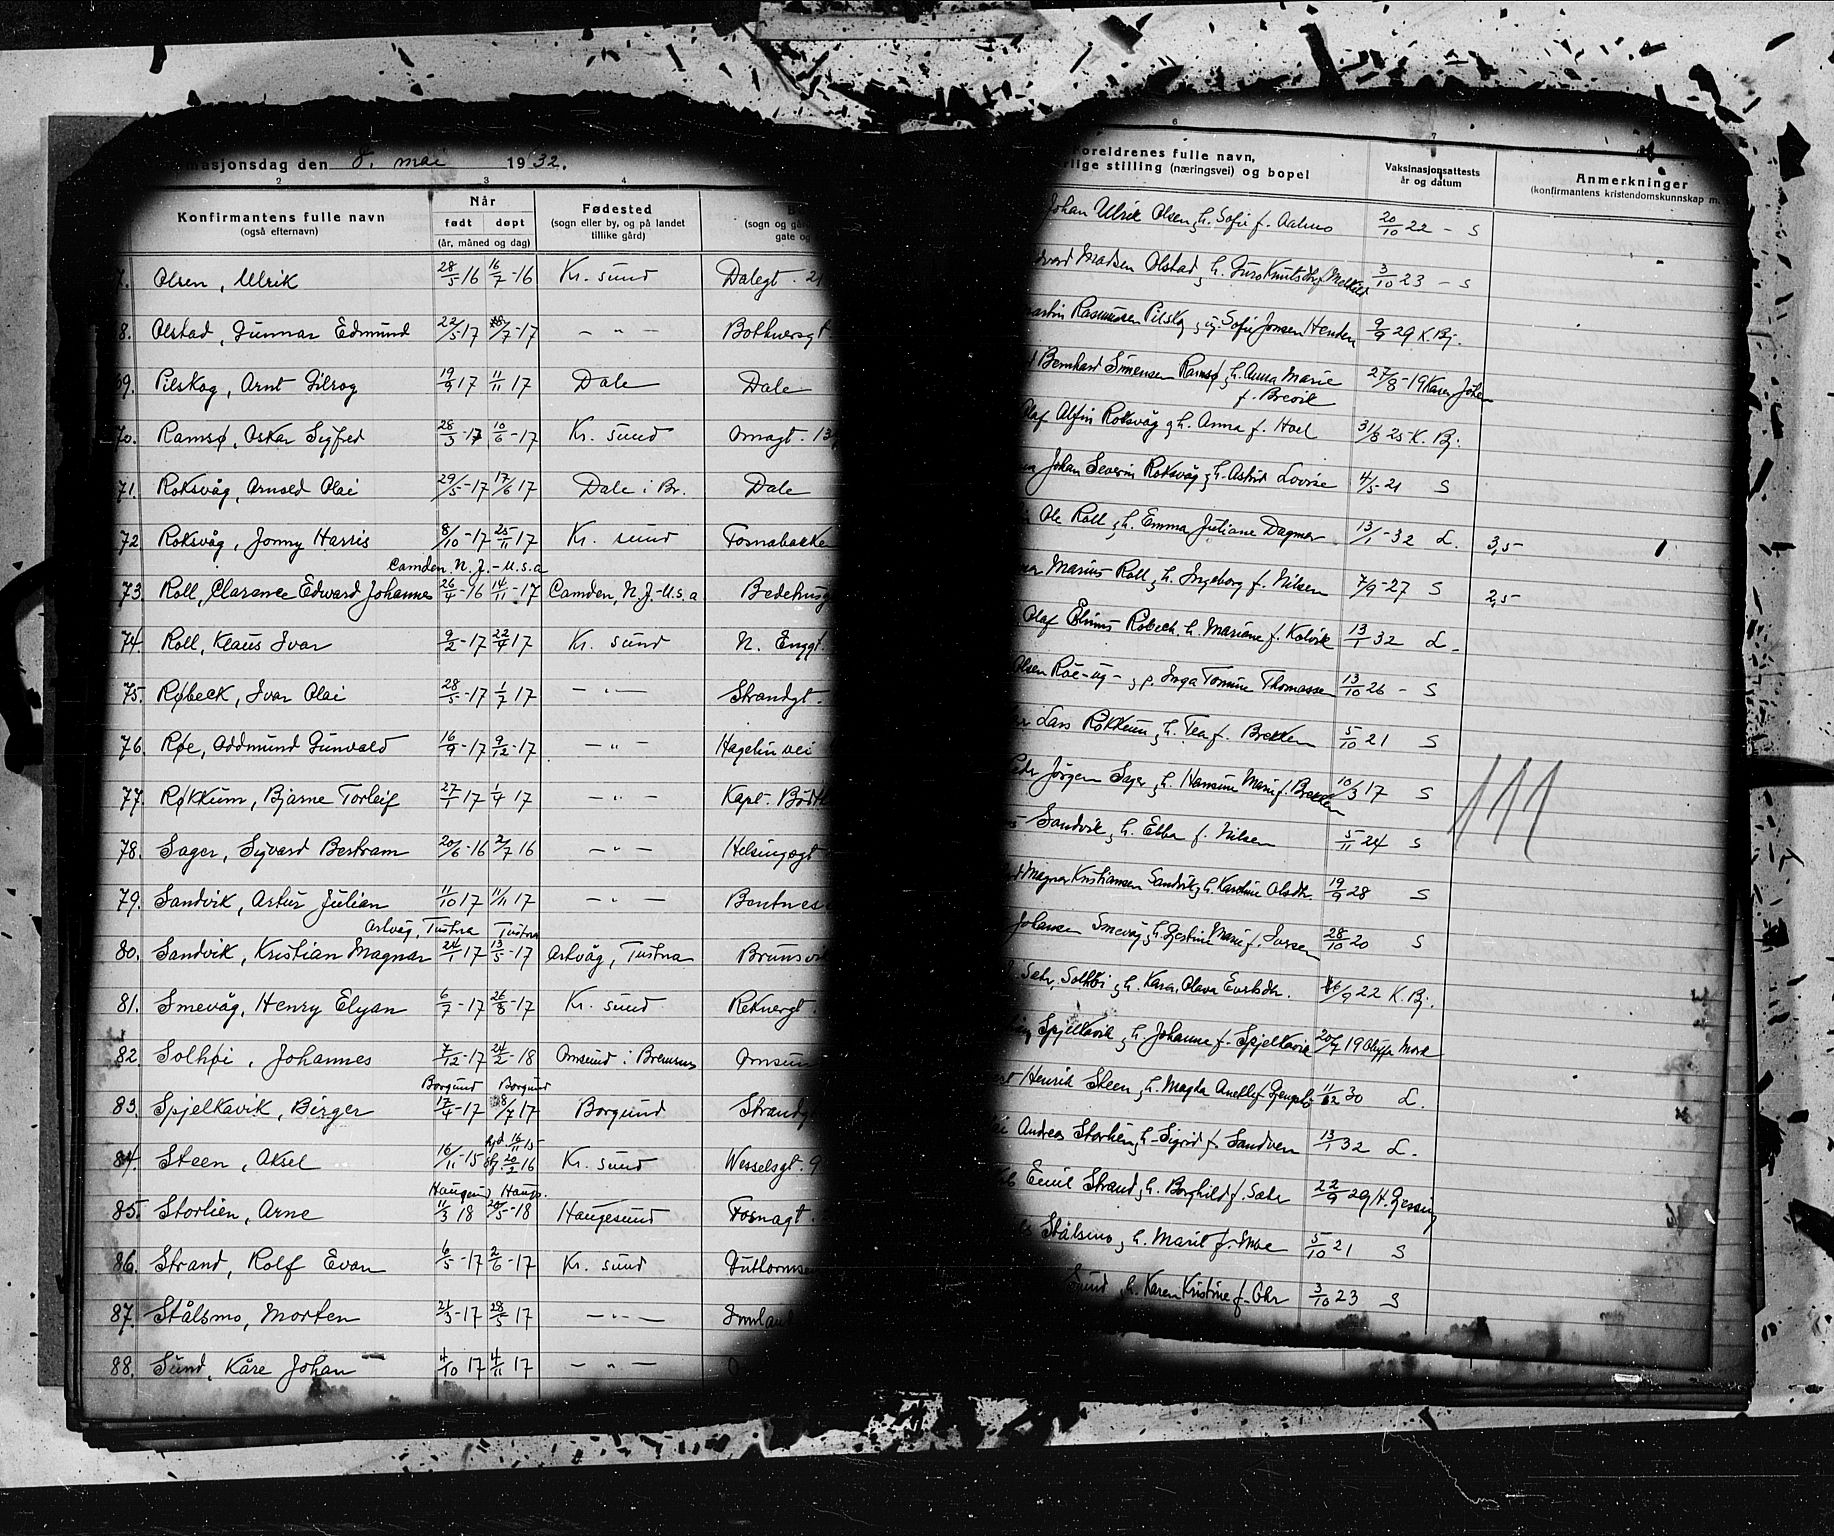 masjonsdag den 8. mai 1932.
2 3 4
Konfirmantens fulle navn
(også efternavn)
Når
født døpt
(år, måned og dag)
Fødested
(sogn eller by, og på landet
tillike gård)
(sogn og går
gate og
Olsen, Ulrik 28/5 16 16/7 -16 Kr. sund Dalegt. 21
8. Olstad, Gunnar Edmund 22/5 17 /7 -17 — " —
69. Pilskog, Arnt Gilroy 19/9 17 11/11 17 Dale Dale
70. Ramsø, Oskar Sigfred 28/3 -17 10/6 -17 Kr. sund Omagt. 13
71. Roksvåg, Arnold Olai 29/5 -17 17/6 17 Dale i Br. Dale
72 Roksvåg, Jonny Harris 8/10 -17 25/11 17 Kr. sund Fosnabakken
Camden N. J. - U.s.a
73. Roll, Clarence Edward Johannes 26/4 -16 14/11 -17 Camden, N.J.-U.s.a Bedehusg
74. Roll, Klaus Ivar 9/2 -17 22/4 17 Kr. sund N. Enggt.
75. Røbeck, Ivar Olai 28/5 -17 1/7 17 — " — Strandgt.
76. Røe, Oddmund Gunvald 16/9 -17 9/12 -17 — " — Hagelin vei
77. Røkkum, Bjarne Torleif 27/1 17 1/4 17 — " —
78. Sager, Sigvard Bertram 20/6 -16 2/7 16 — " — Helsingøgt
79. Sandvik, Artur Julian 11/10 17 11/11 17 — " — Bentnes
Arkvåg, Tustna Tustna
80. Sandvik, Kristian Magnar 24/1 17 13/5 -17 Arkvåg, Tustna Brunsvi
81. Smevåg, Henry Elyan 6/7 -17 26/8 -17 Kr. sund Reknesgt.
82 Solhøi, Johannes 7/12 -17 24/2 -18 Omsund i Bremsnes Omsun
Borgund Borgund
83. Spjelkavik, Birger 17/4 -17 8/7 17 Borgund Strandg
hjd. 16/11 -15
84. Steen, Aksel 16/11 -15 20/2 16 Kr. sund Wesselsgt. 9
Haugesund Hauges.
85. Storlien, Arne 11/3 18 20/5 -18 Haugesund Fosnagt.
86. Strand, Rolf Evan 6/5 -17 2/6 -17 Kr. sund
87. Stålsmo, Morten 24/3 -17 28/5 17 — " —
88. Sund, Kåre Johan 4/10 17 4/11 17 — " —
6 7
Foreldrenes fulle navn,
rlige stilling (næringsvei) og bopel
Vaksinasjonsattests
år og datum
Anmerkninger
(konfirmantens kristendomskunnskap m.
Johan Ulrik Olsen, h. Sofie f. Aalmo 20/10 22 - S
dvard Madsen Olstad, h. Guro Knutsdtr f. Melkild 3/10 23 - S
artin Rasmussen Pilskog, ug. Sofie Jonsen Henden 9/9 29 K. Bj.
Bernhard Simensen Ramsø, h. Anna Marie 27/8 -19 Karen Johan
f. Brevik
Olaf Alfin Roksvåg, h. Anna f. Hoel 31/8 25 - K. Bj.
Johan Severin Roksvåg, h. Astrid Lovise 4/5 -21 S
Ole Roll, h. Emma Juliane Dagmar 13/1 -32 L. 3,5
Marius Roll, h. Ingeborg f. Nilsen 7/9 -27 S 2,5
Olaf Elinus Røbeck h. Mariane f. Kolvik 13/1 32 L.
Olsen Røe - ug - Inga Tomine Thomassen 13/10 26 - S
Lars Røkkum, h. Tea f. Brekken 5/10 21 S
Jørgen Sager, h. Hansine Marie f. Brekken 10/3 17 S
111
Sandvik, h. Ebba f. Nilsen 5/11 24 S
Magnar Kristiansen Sandvik, h. Karoline Olsdtr. 19/9 28 S
Johansen Smevåg, h. Gjertine Marie f. Iversen 28/10 20 S
Sætr, Solhøi, h. Karen Olava Evertsdtr. /9 22 K. Bj.
Spjelkavik, h. Johanne f. Spjelkavik 20/7 19
Henrik Steen, h. Magda 30 L.
Andreas Storlien, h. Sigrid f. Sandven 13/1 32 L.
Emil Strand, h. Borghild f. Sætr 22/9 29 H. Gjessing
Stålsmo, h. Marit f. Moe 5/10 21 S
Sund, h. Karen Kristine f. Ohr 3/10 23 S